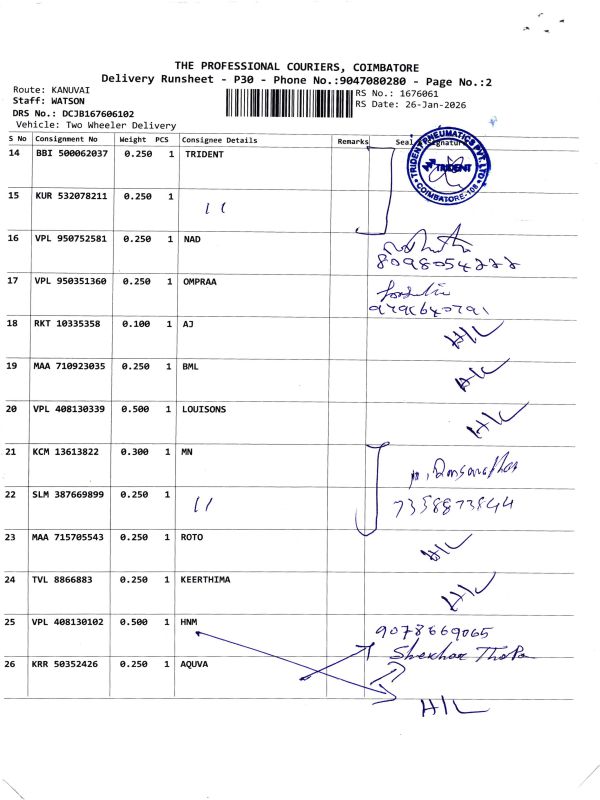 THE PROFESSIONAL COURIERS, COIMBATORE
Delivery Runsheet - P30 - Phone No.:9047080280 - Page No.:2
Route: KANUVAI
Staff: WATSON
DRS No.: DCJB167606102
Vehicle: Two Wheeler Delivery
RS No.: 1676061
RS Date: 26-Jan-2026
S No Consignment No Weight PCS Consignee Details Remarks Seal & Signature
TRIDENT PNEUMATICS PVT. LTD.
TRIDENT
COIMBATORE-108
14 BBI 500062037 0.250 1 TRIDENT
15 KUR 532078211 0.250 1 〃
16 VPL 950752581 0.250 1 NAD
8098054222
17 VPL 950351360 0.250 1 OMPRAA
9791640791
18 RKT 10335358 0.100 1 AJ H/L
19 MAA 710923035 0.250 1 BML H/L
20 VPL 408130339 0.500 1 LOUISONS H/L
21 KCM 13613822 0.300 1 MN
22 SLM 387669899 0.250 1 〃 7358873844
23 MAA 715705543 0.250 1 ROTO H/L
24 TVL 8866883 0.250 1 KEERTHIMA H/L
25 VPL 408130102 0.500 1 HNM 9078669065
Shekhar Thapa
26 KRR 50352426 0.250 1 AQUVA
H/L